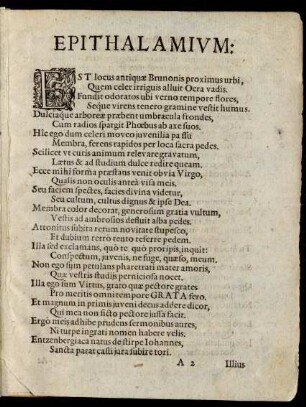 EPITHALAMIVM:
EST locus antiquæ Brunonis proximus urbi,
Quem celer irriguis alluit Ocra vadis.
Fundit odoratos ubi verno tempore flores,
Seque virens tenero gramine vestit humus.
Dulciaque arboreæ præbent umbracula frondes,
Cum radios spargit Phœbus ab axe suos.
Hîc ego dum celeri moveo juvenilia passu
Membra, ferens rapidos per loca sacra pedes.
Scilicet ut curis animum relevare gravatum,
Lætus & ad studium dulce redire queam.
Ecce mihi forma præstans venit obvia Virgo,
Qualis non oculis anteà visa meis.
Seu faciem spectes, facies divina videtur,
Seu cultum, cultus dignus & ipse Dea.
Membra color decorat, generosum gratia vultum,
Vestis ad ambrosios defluit alba pedes.
Attonitus subita rerum novitate stupesco,
Et dubium retrò tento referre pedem.
Illa sed exclamans, quò te quò proripis, inquit:
Conspectum, juvenis, ne fuge, quæso, meum.
Non ego sum petulans pharetrati mater amoris,
Quæ vestris studijs perniciosa nocet.
Illa ego sum Virtus, grato quæ pectore grates
Pro meritis omni tempore GRATA fero.
Et magnum in primis juveni decus addere dicor,
Qui mea non ficto pectore jussa facit.
Ergò meis adhibe prudens sermonibus aures,
Ni turpe ingrati nomen habere velis.
Entzenbergiaca natus de stirpe Iohannes,
Sancta parat casti jura subire tori.
A 2 Illius